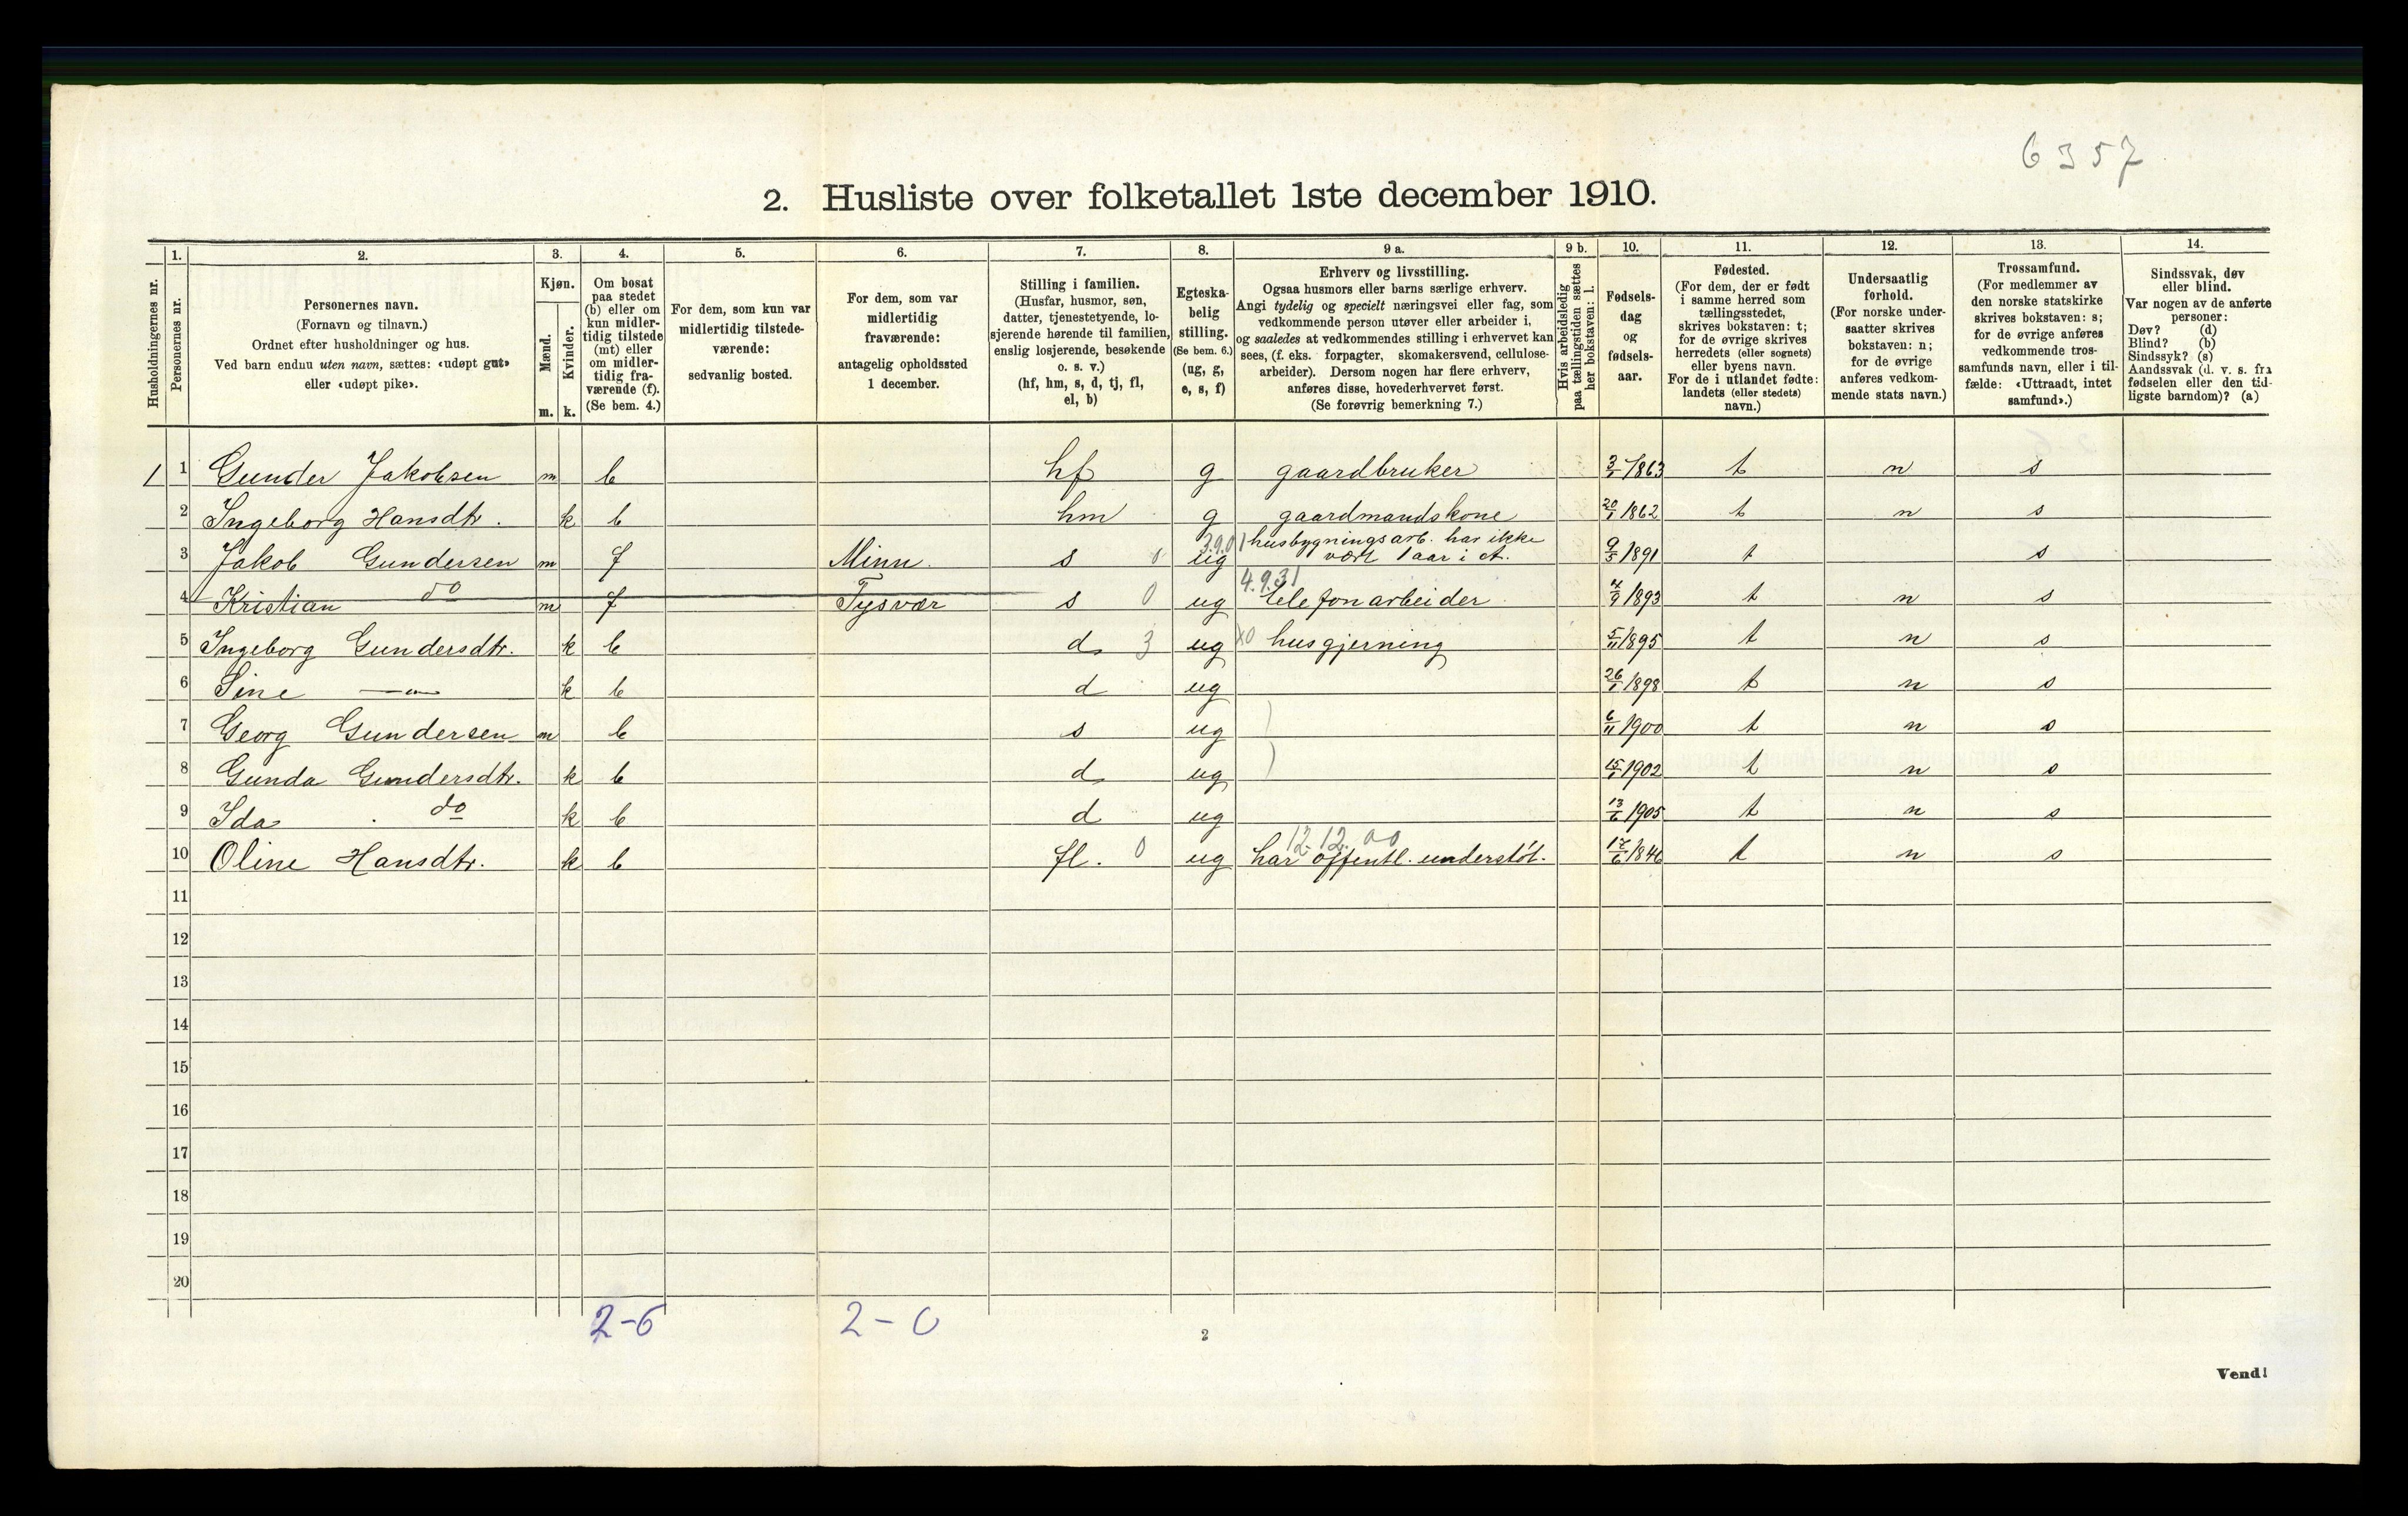 6357
2. Husliste over folketallet 1ste december 1910.
Husholdningernes nr.
1.
Personernes nr.
2.
Personernes navn.
(Fornavn og tilnavn.)
Ordnet efter husholdninger og hus.
Ved barn endnu uten navn, sættes: «udøpt gut»
eller «udøpt pike».
3.
Kjøn.
Mænd.
m.
Kvinder.
k.
4.
Om bosat
paa stedet
(b) eller om
kun midler-
tidig tilstede
(mt) eller
om midler-
tidig fra-
værende (f).
(Se bem. 4.)
5.
For dem, som kun var
midlertidig tilstede-
værende:
sedvanlig bosted.
6.
For dem, som var
midlertidig
fraværende:
antagelig opholdssted
1 december.
7.
Stilling i familien.
(Husfar, husmor, søn,
datter, tjenestetyende, lo-
sjerende hørende til familien,
enslig losjerende, besøkende
o. s. v.)
(hf, hm, s, d, tj, fl,
el, b)
8.
Egteska-
belig
stilling.
(Se bem. 6.)
(ug, g,
e, s, f)
9 a.
Erhverv og livsstilling.
Ogsaa husmors eller barns særlige erhverv.
Angi tydelig og specielt næringsvei eller fag, som
vedkommende person utøver eller arbeider i,
og saaledes at vedkommendes stilling i erhvervet kan
sees, (f. eks. forpagter, skomakersvend, cellulose-
arbeider). Dersom nogen har flere erhverv,
anføres disse, hovederhvervet først.
(Se forøvrig bemerkning 7.)
9 b.
Hvis arbeidsledig
paa tællingstiden sættes
her bokstaven: l.
10.
Fødsels-
dag
og
fødsels-
aar.
11.
Fødested.
(For dem, der er født
i samme herred som
tællingsstedet,
skrives bokstaven: t;
for de øvrige skrives
herredets (eller sognets)
eller byens navn.
For de i utlandet fødte:
landets (eller stedets)
navn.)
12.
Undersaatlig
forhold.
(For norske under-
saatter skrives
bokstaven: n;
for de øvrige
anføres vedkom-
mende stats navn.)
13.
Trossamfund.
(For medlemmer av
den norske statskirke
skrives bokstaven: s;
for de øvrige anføres
vedkommende tros-
samfunds navn, eller i til-
fælde: «Uttraadt, intet
samfund».)
14.
Sindssvak, døv
eller blind.
Var nogen av de anførte
personer:
Døv? (d)
Blind? (b)
Sindssyk? (s)
Aandssvak (d. v. s. fra
fødselen eller den tid-
ligste barndom)? (a)
1 1 Gunder Jakobsen m b hf g gaardbruker 3/1 1863 t n s
2 Ingeborg Hansdtr. k b hm g gaardmandskone 20/1 1862 t n s
3 Jakob Gundersen m f Minn. s ug husbygningsarb. har ikke
vært 1 aar i A. 9/5 1891 t s
4.9.31
4 Kristian do m f Tysvær s 0 ug telefonarbeider 4/9 1893 t n s
5 Ingeborg Gundersdtr. k b d 3 ug husgjerning 5/11 1895 t n s
6 Sine —"— k b d ug 26/1 1898 t n s
7 Georg Gundersen m b s ug 6/11 1900 t n s
8 Gunda Gundersdtr. k b d ug 15/1 1902 t n s
9 Ida do k b d ug 13/6 1905 t n s
12.12.00
10 Oline Hansdtr. k b fl. 0 ug har offentl. understøt. 17/6 1846 t n s
11
12
13
14
15
16
17
18
19
20
2-6 2-0
2
Vend!